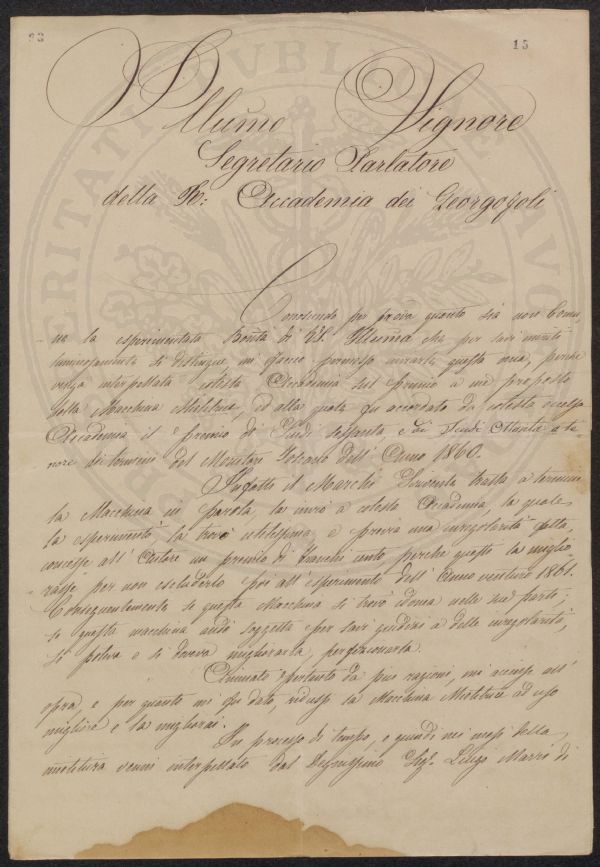 15
Illumo Signore
Segretario Parlatore
della R: Accademia dei Georgofoli
Conoscendo per prova quanto sia non Comu-
ne la esperimentata Bontà di V.S. Illuma che per savi meriti
luminosamente si distingue, mi faccio permesso inviarle questa mia, perchè
venga interpellata cotesta Accademia sul premio a me proposto
della Macchina Mietitrice, ed alla quale fu accordato da cotesta
Accademia il premio di Scudi sessanta e Scudi Ottanta a te-
nore del Monitore Toscano dell' Anno 1860.
Infatto il Marchi trasse a termine
la Macchina in parola, la inviò a cotesta Accademia, la quale
la esperimentò la trovò utilissima e previa una
concesse all' Autore un premio di franchi cento perchè questo la miglio
rasse per non escluderlo poi all' esperimento dell' Anno venturo 1861.
Conseguentemente se questa Macchina si trovò idonea nelle sue parti;
se questa macchina andò soggetta per savi giudizi a delle irregolarità,
si poteva e si doveva migliorarla, perfezionarla.
Animato pertanto da pue ragioni, mi accinsi all'
opra, e per quanto mi fu dato, ridussi la Macchina Mietitrice ad uso
migliore e la migliorai.
In processo di tempo, e quando nei mesi della
mietitura venni interpellato dal Degnissimo Sigr. Luigi Marrè di